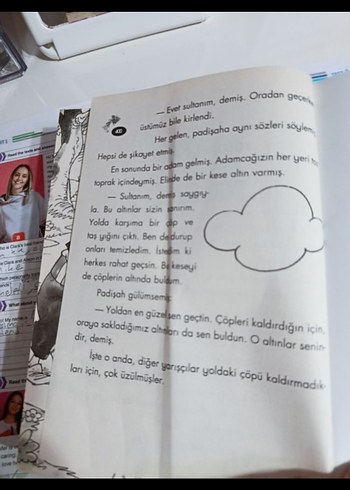 — Evet sultanım, demiş. Oradan geçerken
üstümüz bile kirlendi.
400
Her gelen, padişaha aynı sözleri söylemiş.
Hepsi de şikayet etmiş.
En sonunda bir adam gelmiş. Adamcağızın her yeri
toprak içindeymiş. Elinde de bir kese altın varmış.
— Sultanım, demiş saygıy-
la. Bu altınlar sizin sanırım.
Yolda karşıma bir çöp ve
taş yığını çıktı. Ben de durup
onları temizledim. İstedim ki
herkes rahat geçsin. Bu keseyi
de çöplerin altında buldum.
Padişah gülümsemiş:
— Yoldan en güzel sen geçtin. Çöpleri kaldırdığın için,
oraya sakladığımız altınları da sen buldun. O altınlar senin-
dir, demiş.
İşte o anda, diğer yarışçılar yoldaki çöpü kaldırmadık-
ları için, çok üzülmüşler.